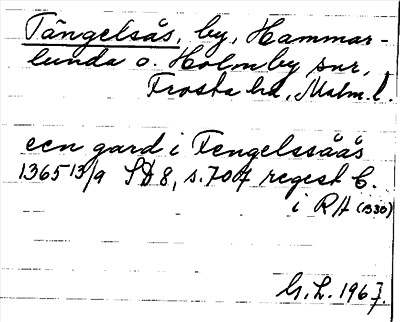 Tängelsås, by, Hammar-
lunda o. Holmby snr,
Frosta hd, Malm. l.
een gard i Tengelssåås
1365 13/9 SD 8, s. 707 regest C.
i RA (1330)
G. L. 1967.